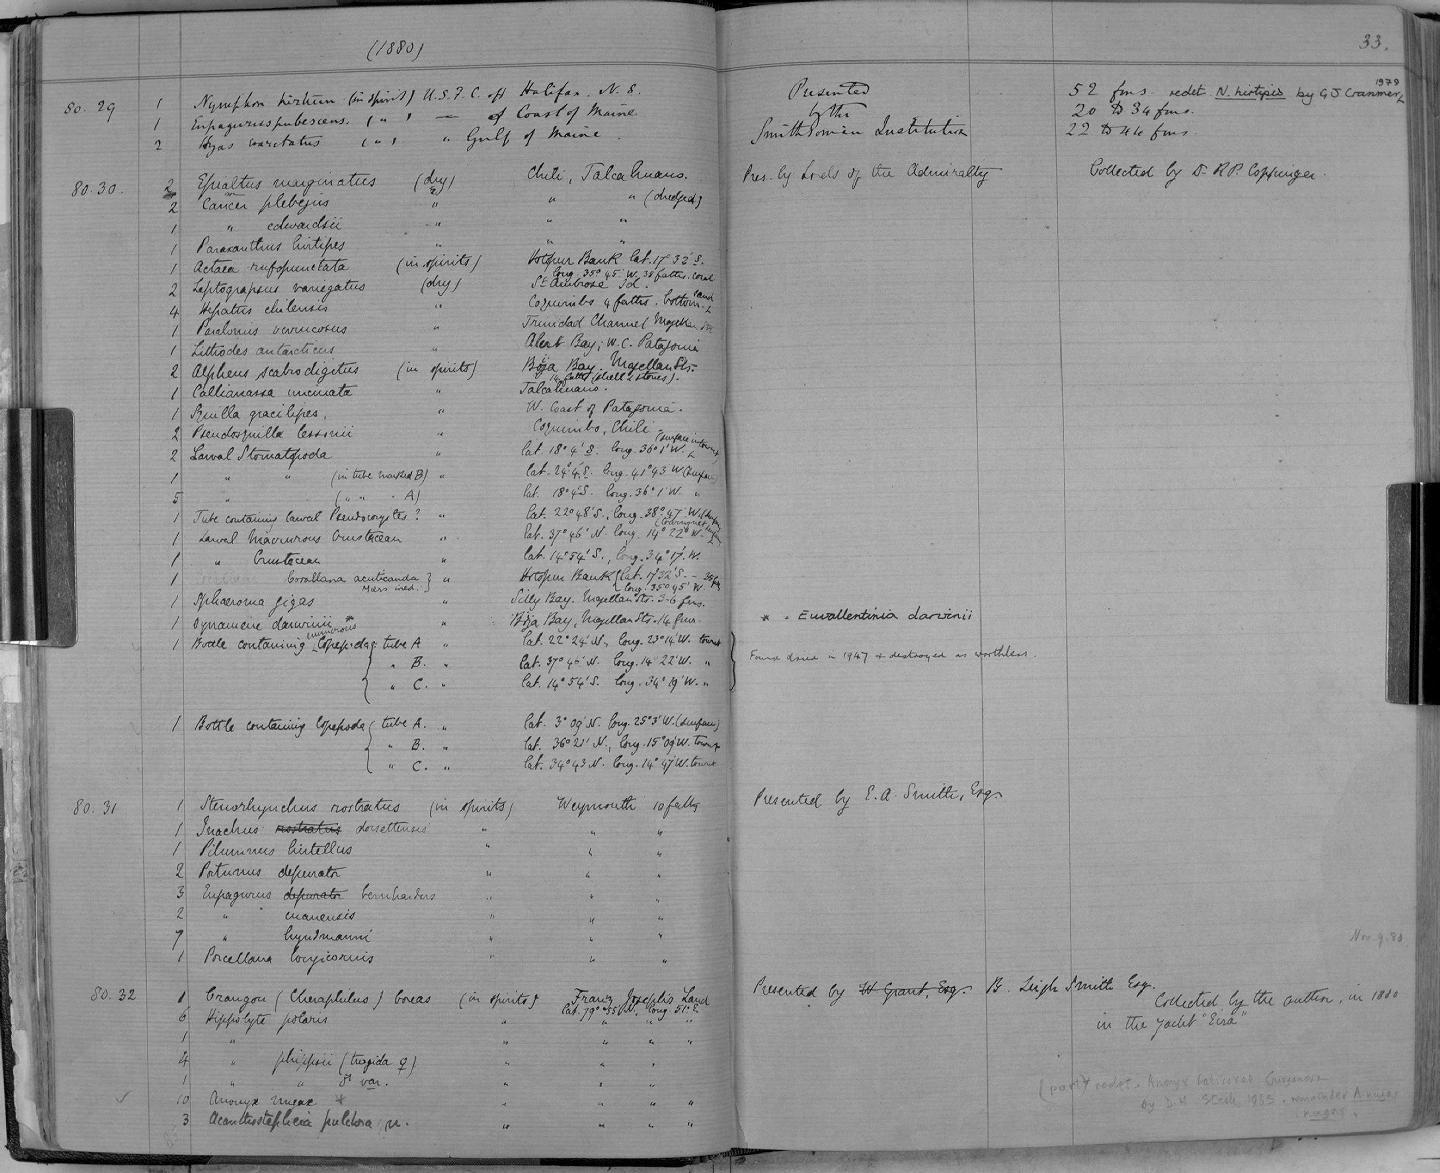 (1880)
33.
80. 29 1 Nymphon hirtum (in spirits) U.S.F.C. off Halifax. N. S. Presented 52 fms. redet. N. hirtipes by G J Cranmer 1979
1 Eupagurus pubescens. ( " ) — off Coast of Maine by the 20 to 34 fms.
2 Hyas coarctatus ( " ) " Gulf of Maine Smithsonian Institution 22 to 44 fms.
80. 30. 2 Epialtus marginatus (dry) Chili, Talcahuano. Pres. by Lords of the Admiralty Collected by Dr R.P. Coppinger.
2 Cancer plebejus " " " (dredged)
1 " edwardsii " " "
1 Paraxanthus hirtipes " " "
1 Actaea rufopunctata (in spirits) Hotspur Bank Lat. 17° 32' S.
long. 35° 45' W. 35 faths. coral
2 Leptograpsus variegatus (dry) St Ambrose Id.
4 Hepatus chilensis " Coquimbo 4 faths. bottom sand
1 Paralomis verrucosus " Trinidad Channel
1 Lithodes antarcticus " Alert Bay, W. C. Patagonia
2 Alpheus scabrodigitus (in spirits) Borja Bay. Magellan Sts.
14 faths (shell & stones).
1 Callianassa uncinata " Talcahuano.
1 Squilla gracilipes. " W. Coast of Patagonia.
2 Pseudosquilla lessonii " Coquimbo, Chili
2 Larval Stomatopoda " Lat. 18° 4' S. long. 36° 1' W. (surface in townet)
1 " " (in tube marked B) " Lat. 24° 4' S. long. 41° 43' W (surface
5 " ( " " " A) Lat. 18° 4' S. long. 36° 1' W. "
1 Tube containing larval ? " Lat. 22° 48' S., long. 38° 47' W.
1 Larval Macrurous Crustacean " Lat. 37° 46' N. long. 14° 22' W.
1 " Crustacean " Lat. 14° 54' S., long. 34° 17' W.
1 Corallana acuticauda Miers ined. } " Hotspur Bank (Lat. 17° 32' S. — 35 f
long. 35° 45' W.
1 Sphaeroma gigas " Silly Bay. Magellan Sts. 3-6 fms.
1 Dynamene darwinii * " Borja Bay, Magellan Sts. 14 fms. * = Euvallentinia darwinii
1 Bottle containing numerous Copepoda tube A " Lat. 22° 24' N., long. 23° 14' W. townet
" B. " Lat. 37° 46' N. long. 14° 22' W. " Found dried in 1947 & destroyed as worthless.
" C. " Lat. 14° 54' S. long. 34° 19' W. "
1 Bottle containing Copepoda tube A. " Lat. 3° 09' N. long. 25° 3' W. (surface)
" B. " Lat. 36° 21' N., long. 15° 09' W. townet
" C. " Lat. 34° 43' N. long. 14° 47' W. townet
80. 31 1 Stenorhynchus rostratus (in spirits) Weymouth 10 faths Presented by E. A. Smith, Esq.
1 Inachus rostratus dorsettensis " " "
1 Pilumnus hirtellus " " "
2 Portunus depurator " " "
3 Eupagurus depurator bernhardus " " "
2 " cuanensis " "
7 " hyndmanni " " "
1 Porcellana longicornis " " "
Nov. 9. 80
80. 32 1 Crangon (Cheraphilus) boreas (in spirits) Franz Josephs Land Presented by W Grant, Esq. B. Leigh Smith Esq.
Lat. 79° 55' N. long. 51° E. Collected by the author, in 1880
6 Hippolyte polaris " " " " in the yacht "Eira"
1 " " " " "
4 " phippsii (turgida ♀) " " "
1 " " ♂ var. " " "
10 Anonyx nugax * " " " (part) redet. Anonyx
by D. H Steele 1985. remainder A. nugax
3 Acanthostepheia pulchra, n. " " "